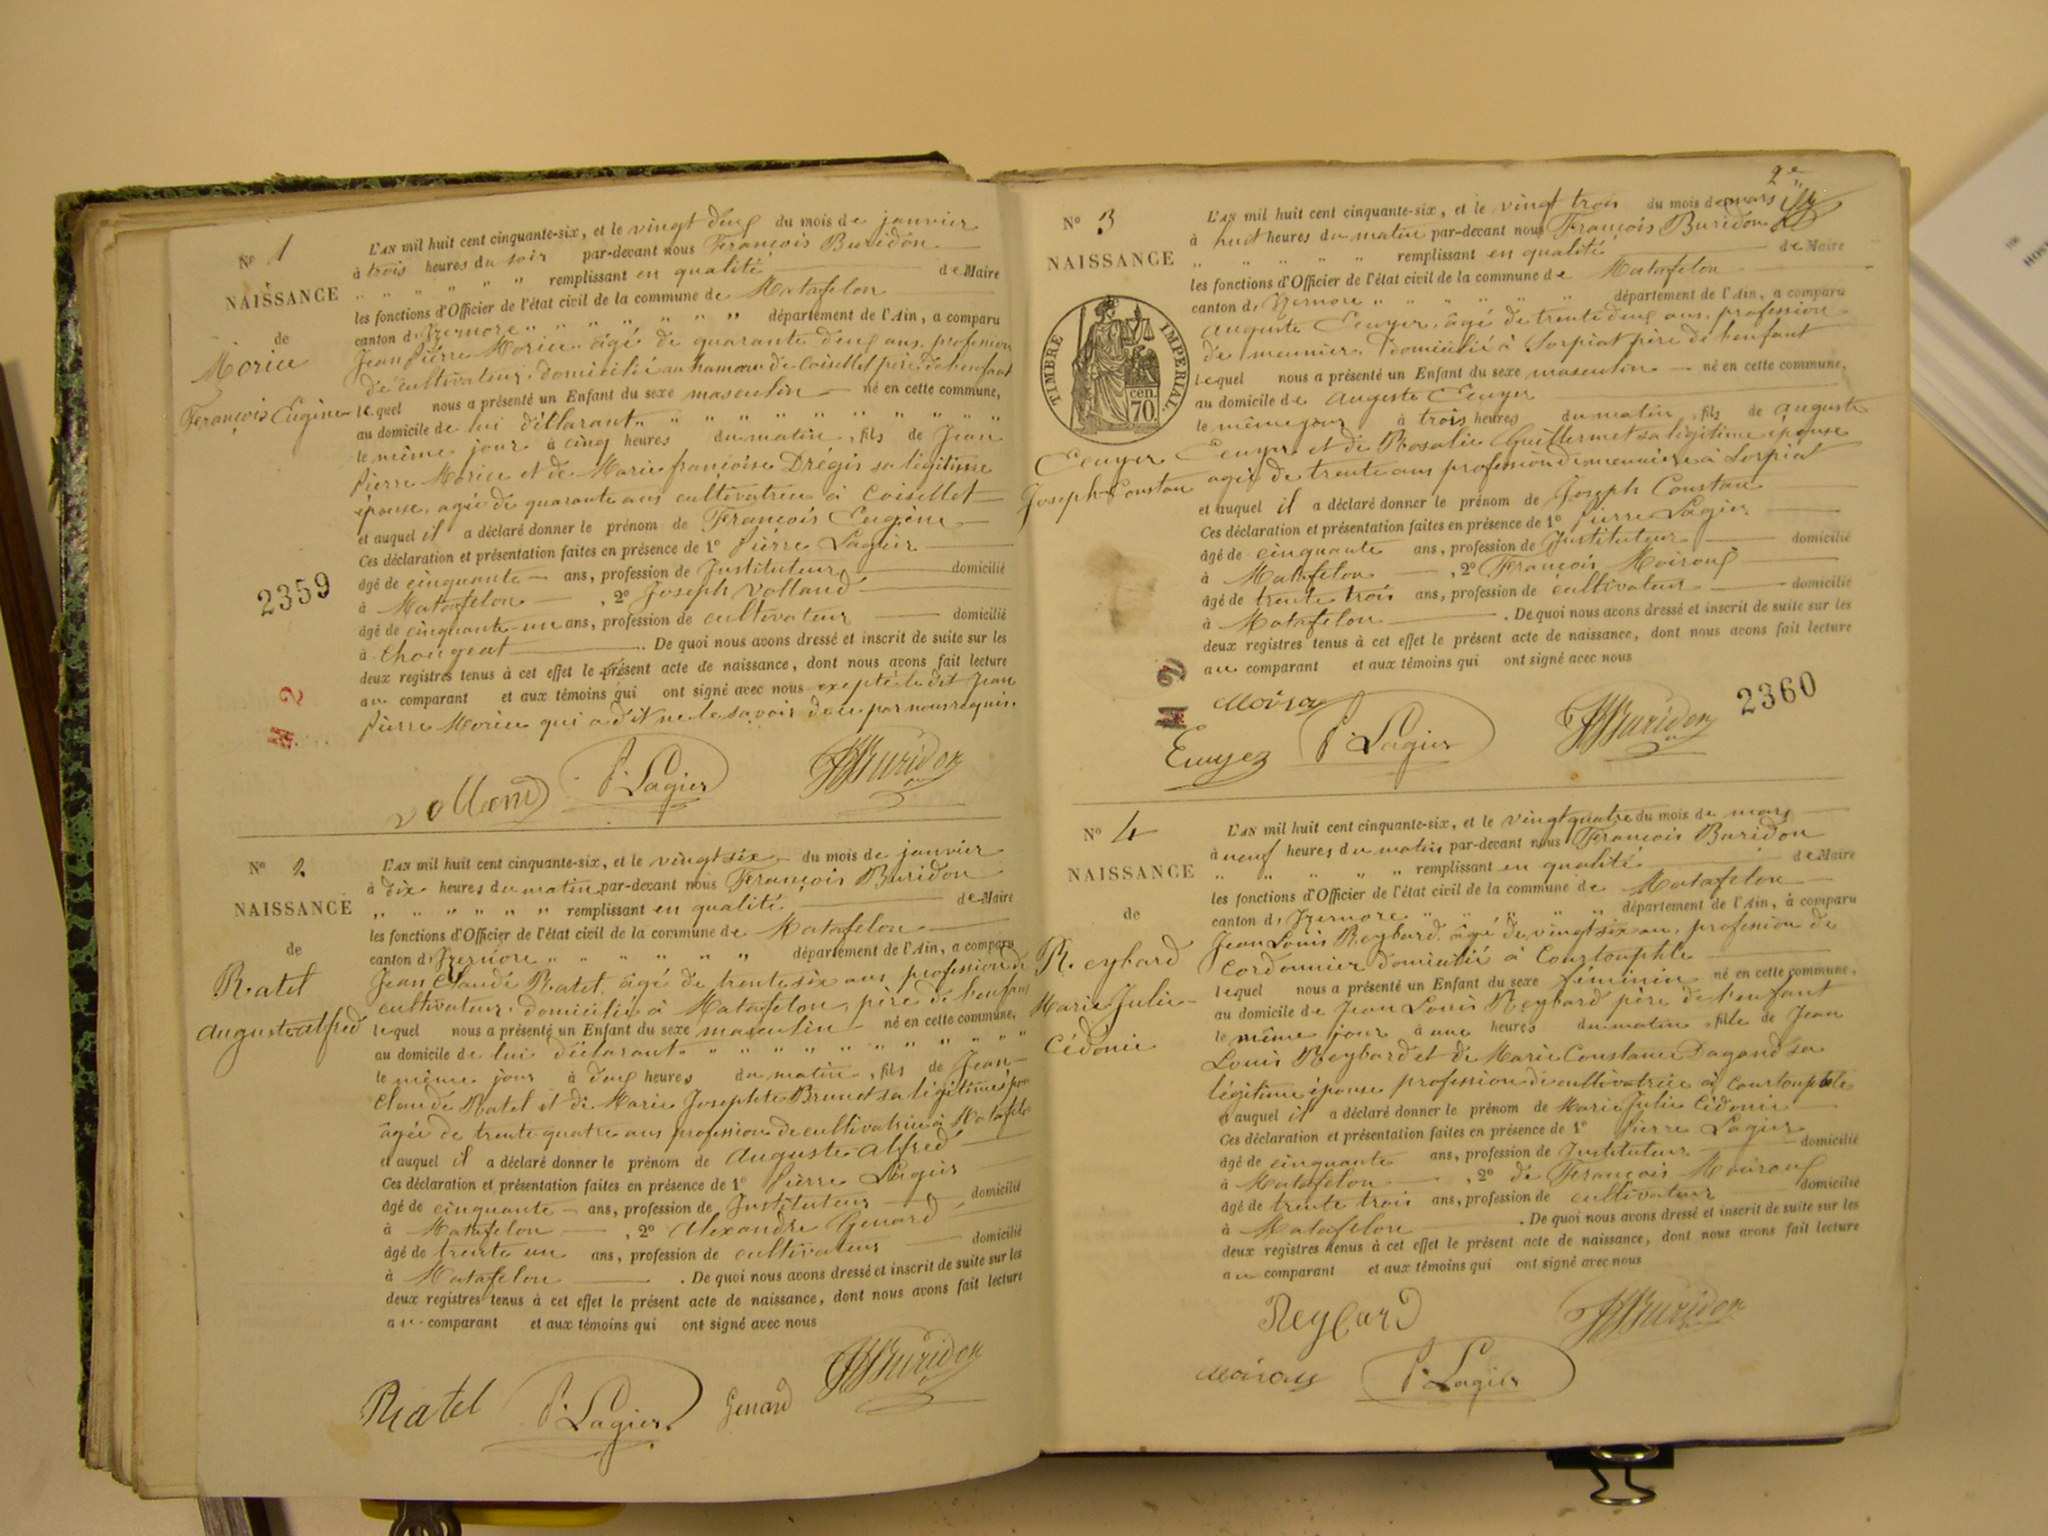 N° 1
NAISSANCE
de
Morice
François Eugène
L'AN mil huit cent cinquante-six, et le vingt deux du mois de janvier
à trois heures du soir par-devant nous François Buridon
" " " " " " remplissant en qualité de Maire
les fonctions d'Officier de l'état civil de la commune de Matafelon
canton d'Izernore " " " " " " " département de l'Ain, a comparu
Jean Pierre Morice âgé de quarante deux ans, profession
de cultivateur, domicilié au hameau de Coisellet père de l'enfant
lequel nous a présenté un Enfant du sexe masculin né en cette commune,
au domicile de lui déclarant " " " " " " " " "
le même jour à cinq heures du matin, fils de Jean
Pierre Morice et de Marie françoise Drégis sa légitime
épouse, agée de quarante ans cultivatrice à Coisellet
et auquel il a déclaré donner le prénom de François Eugène
Ces déclaration et présentation faites en présence de 1° Pierre Lagier
âgé de cinquante ans, profession de Instituteur domicilié
à Matafelon, 2° Joseph Volland
âgé de cinquante-un ans, profession de cultivateur domicilié
à Chougeat. De quoi nous avons dressé et inscrit de suite sur les
deux registres tenus à cet effet le présent acte de naissance, dont nous avons fait lecture
au comparant et aux témoins qui ont signé avec nous excepté le dit Jean
Pierre Morice qui a dit ne le savoir de ce par nous requis.
2359
2
Volland P. Lagier Buridon
N° 2
NAISSANCE
de
Ratel
auguste alfred
L'AN mil huit cent cinquante-six, et le vingt six du mois de janvier
à dix heures du matin par-devant nous François Buridon
" " " " " " remplissant en qualité de Maire
les fonctions d'Officier de l'état civil de la commune de Matafelon
canton d'Izernore " " " " " " département de l'Ain, a comparu
Jean Claude Ratel, âgé de trente six ans profession de
cultivateur, domicilié à Matafelon, père de l'enfant
lequel nous a présenté un Enfant du sexe masculin né en cette commune,
au domicile de lui déclarant " " " " " " " " "
le même jour à deux heures du matin, fils de Jean
Claude Ratel et de Marie Josephte Brunet sa légitime épouse
âgée de trente quatre ans profession de cultivatrice à Matafelon
et auquel il a déclaré donner le prénom de auguste alfred
Ces déclaration et présentation faites en présence de 1° Pierre Lagier
âgé de cinquante ans, profession de Instituteur domicilié
à Matafelon, 2° Alexandre Genard
âgé de trente un ans, profession de cultivateur domicilié
à Matafelon. De quoi nous avons dressé et inscrit de suite sur les
deux registres tenus à cet effet le présent acte de naissance, dont nous avons fait lecture
au comparant et aux témoins qui ont signé avec nous
Ratel P. Lagier Genard Buridon
2e
N° 3
NAISSANCE
TIMBRE IMPERIAL
70 cen.
Ecuyer
Joseph Constan
L'AN mil huit cent cinquante-six, et le vingt trois du mois de mars
à huit heures du matin par-devant nous François Buridon
" " " " " remplissant en qualité de Maire
les fonctions d'Officier de l'état civil de la commune de Matafelon
canton d'Izernore " " " " " " département de l'Ain, a comparu
auguste Ecuyer, âgé de trente deux ans, profession
de meunier, domicilié à Sorpiat père de l'enfant
lequel nous a présenté un Enfant du sexe masculin né en cette commune,
au domicile de auguste Ecuyer
le même jour à trois heures du matin, fils de auguste
Ecuyer et de Rosalie Guillermet sa légitime épouse
agée de trente ans profession de meunière à Sorpiat
et auquel il a déclaré donner le prénom de Joseph Constan
Ces déclaration et présentation faites en présence de 1° Pierre Lagier
âgé de cinquante ans, profession de Instituteur domicilié
à Matafelon, 2° François Moiroux
âgé de trente trois ans, profession de cultivateur domicilié
à Matafelon. De quoi nous avons dressé et inscrit de suite sur les
deux registres tenus à cet effet le présent acte de naissance, dont nous avons fait lecture
au comparant et aux témoins qui ont signé avec nous
2360
Ecuyer P. Lagier Buridon
N° 4
NAISSANCE
de
Reybard
Marie Julie
Cédonie
L'AN mil huit cent cinquante-six, et le vingt quatre du mois de mars
à neuf heures du matin par-devant nous François Buridon
" " " " " remplissant en qualité de Maire
les fonctions d'Officier de l'état civil de la commune de Matafelon
canton d'Izernore " " " " " département de l'Ain, a comparu
Jean Louis Reybard, âgé de vingt six ans, profession de
cordonnier domicilié à Courtouphle
lequel nous a présenté un Enfant du sexe féminin né en cette commune,
au domicile de Jean Louis Reybard père de l'enfant
le même jour à une heures du matin, fille de Jean
Louis Reybard et de Marie Constance Dagand sa
légitime épouse profession de cultivatrice à Courtouphle
et auquel il a déclaré donner le prénom de Marie Julie Cédonie
Ces déclaration et présentation faites en présence de 1° Pierre Lagier
âgé de cinquante ans, profession de Instituteur domicilié
à Matafelon, 2° de François Moiroux
âgé de trente trois ans, profession de cultivateur domicilié
à Matafelon. De quoi nous avons dressé et inscrit de suite sur les
deux registres tenus à cet effet le présent acte de naissance, dont nous avons fait lecture
au comparant et aux témoins qui ont signé avec nous
Reybard Buridon
Moiroux P. Lagier